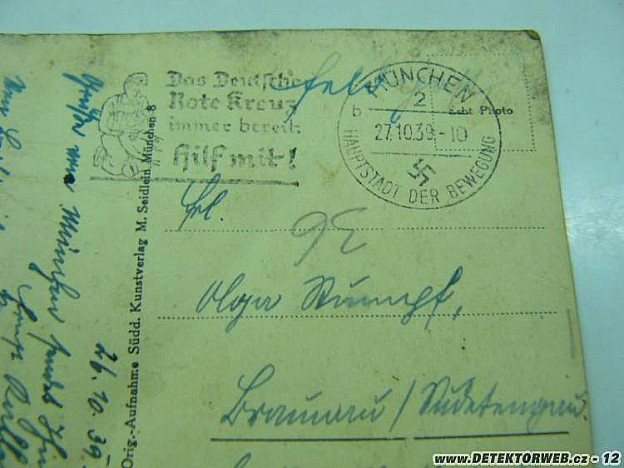 Das Deutsche
Rote Kreuz
immer bereit:
Hilf mit!
Feldp
MÜNCHEN
2
b
27.10.39.-10
HAUPTSTADT DER BEWEGUNG
Echt Photo
Frl.
Olga Stumpf,
Braunau/Sudetengau.
Orig.-Aufnahme Südd. Kunstverlag M. Seidlein, München 8
aus München sendet
26.10.39.
www.DETEKTORWEB.cz - 12